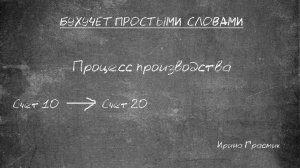 БУХУЧЕТ ПРОСТЫМИ СЛОВАМИ
Процесс производства
Счет 10 → Счет 20
Ирина Простик